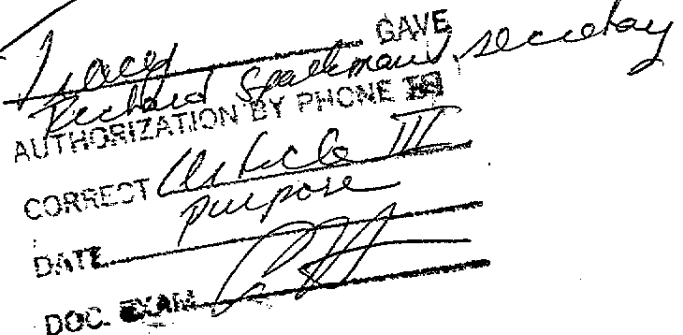 Tracy GAVE
Richard Sparkman's secretary
AUTHORIZATION BY PHONE TO
CORRECT Article III
purpose
DATE
DOC. EXAM